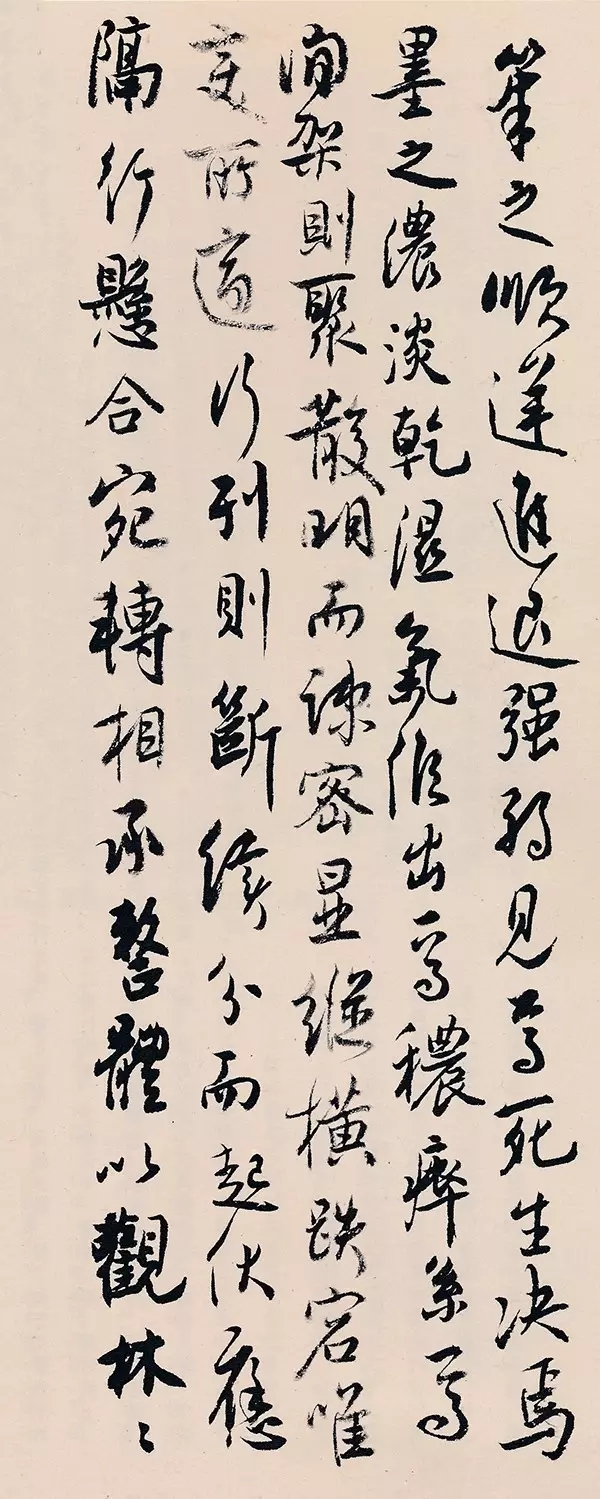 筆之順逆進退强弱見焉死生決焉
墨之濃淡乾濕氣候出焉穠瘠系焉
間架則聚散明而疎密显縱橫跌宕唯
变所適行列則斷續分而起伏應
隔行懸合宛轉相承整體以觀林〻